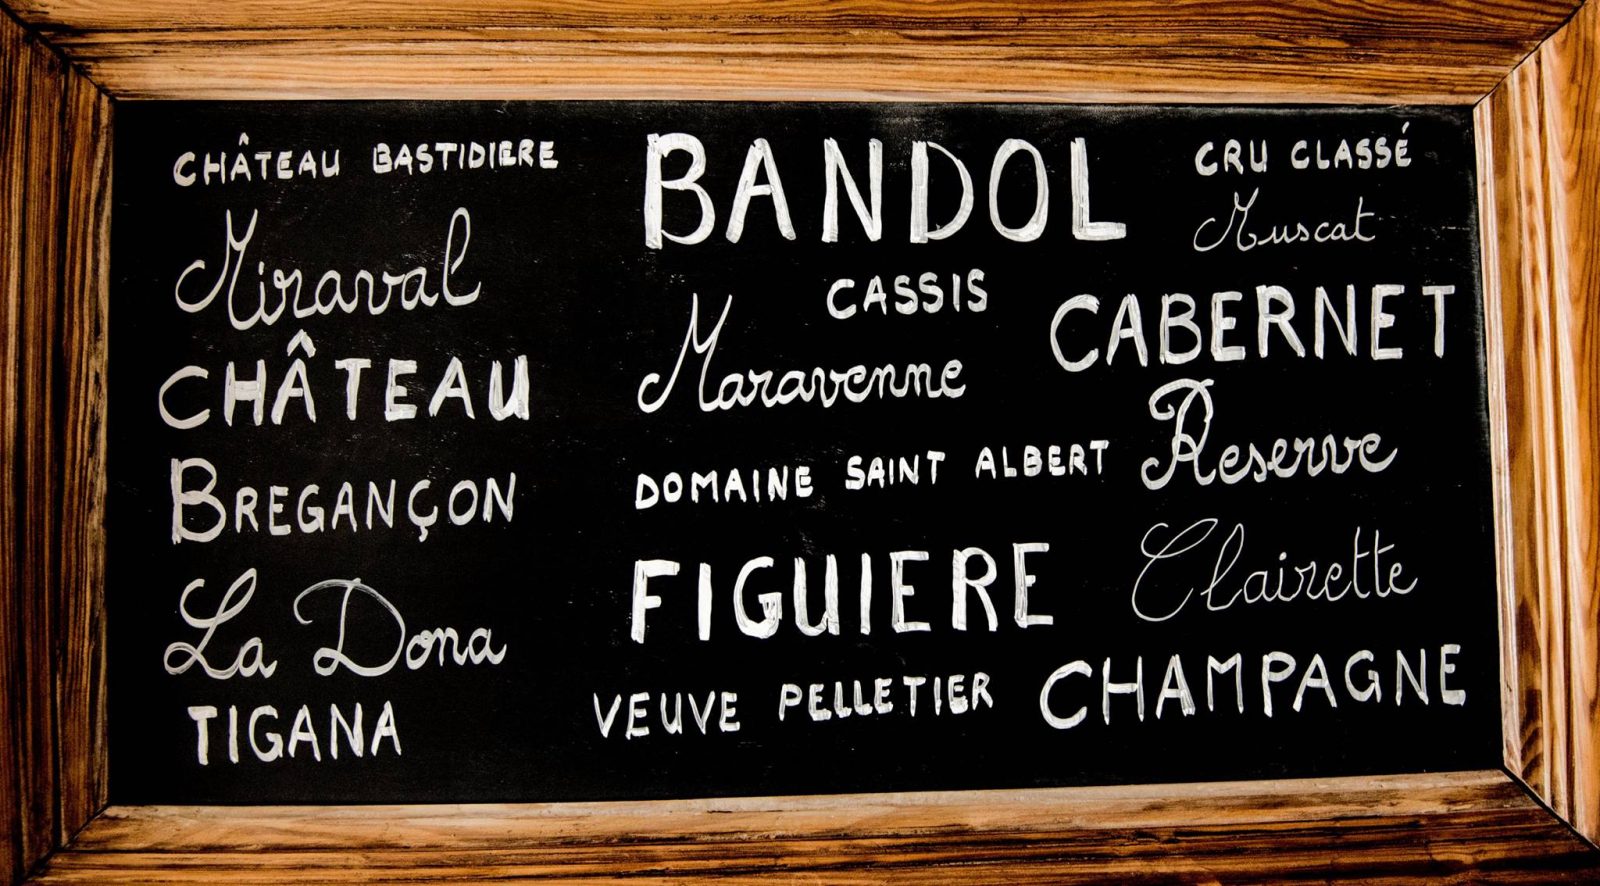 CHÂTEAU BASTIDIERE
Miraval
CHÂTEAU
BREGANÇON
La Dona
TIGANA
BANDOL
CASSIS
Maravenne
DOMAINE SAINT ALBERT
FIGUIERE
VEUVE PELLETIER
CRU CLASSÉ
Muscat
CABERNET
Reserve
Clairette
CHAMPAGNE